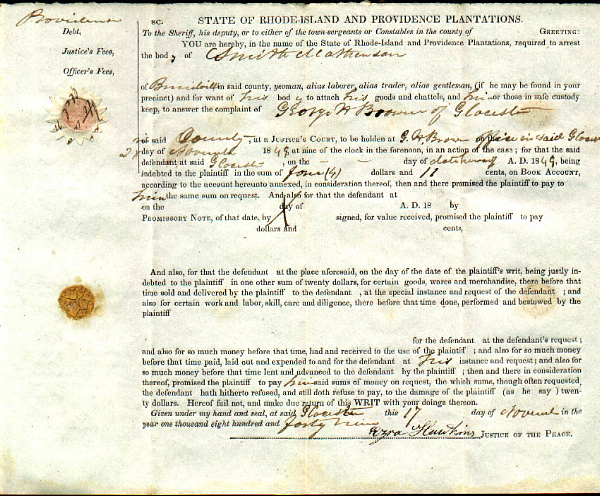 Providence
SC. STATE OF RHODE-ISLAND AND PROVIDENCE PLANTATIONS.
Debt,
To the Sheriff, his deputy, or to either of the town-sergeants or Constables in the county of GREETING:
YOU are hereby, in the name of the State of Rhode-Island and Providence Plantations, required to arrest
Justice's Fees,
the body of Smith Mathewson
Officer's Fees,
of Burrillville in said county, yeoman, alias laborer, alias trader, alias gentleman, (if he may be found in your
precinct) and for want of his body to attach his goods and chattels, and him or those in safe custody
keep, to answer the complaint of George A Brown of Glocester
in said County, at a JUSTICE'S COURT, to be holden at G. A. Brown office in said Glocester
day of November 1849 at nine of the clock in the forenoon, in an action of the case; for that the said
defendant at said Glocester, on the - - day of date hereof A. D. 1849, being
indebted to the plaintiff in the sum of four (4) dollars and 18 cents, on BOOK ACCOUNT,
according to the account hereunto annexed, in consideration thereof, then and there promised the plaintiff to pay to
him the same sum on request. And also for that the defendant at
on the day of A. D. 18 by
PROMISSORY NOTE, of that date, by signed, for value received, promised the plaintiff to pay
dollars and cents,
And also, for that the defendant at the place aforesaid, on the day of the date of the plaintiff's writ, being justly in-
debted to the plaintiff in one other sum of twenty dollars, for certain goods, wares and merchandise, there before that
time sold and delivered by the plaintiff to the defendant , at the special instance and request of the defendant ; and
also for certain work and labor, skill, care and diligence, there before that time done, performed and bestowed by the
plaintiff
for the defendant at the defendant's request;
and also for so much money before that time, had and received to the use of the plaintiff ; and also for so much money
before that time paid, laid out and expended to and for the defendant at his instance and request; and also for
so much money before that time lent and advanced to the defendant by the plaintiff ; then and there in consideration
thereof, promised the plaintiff to pay him said sums of money on request, the which sums, though often requested,
the defendant hath hitherto refused, and still doth refuse to pay, to the damage of the plaintiff (as he say ) twen-
ty dollars. Hereof fail not, and make due return of this WRIT with your doings thereon.
Given under my hand and seal, at said Glocester this 17 day of Novem in the
year one thousand eight hundred and forty nine
Ezra Hawkins JUSTICE OF THE PEACE.